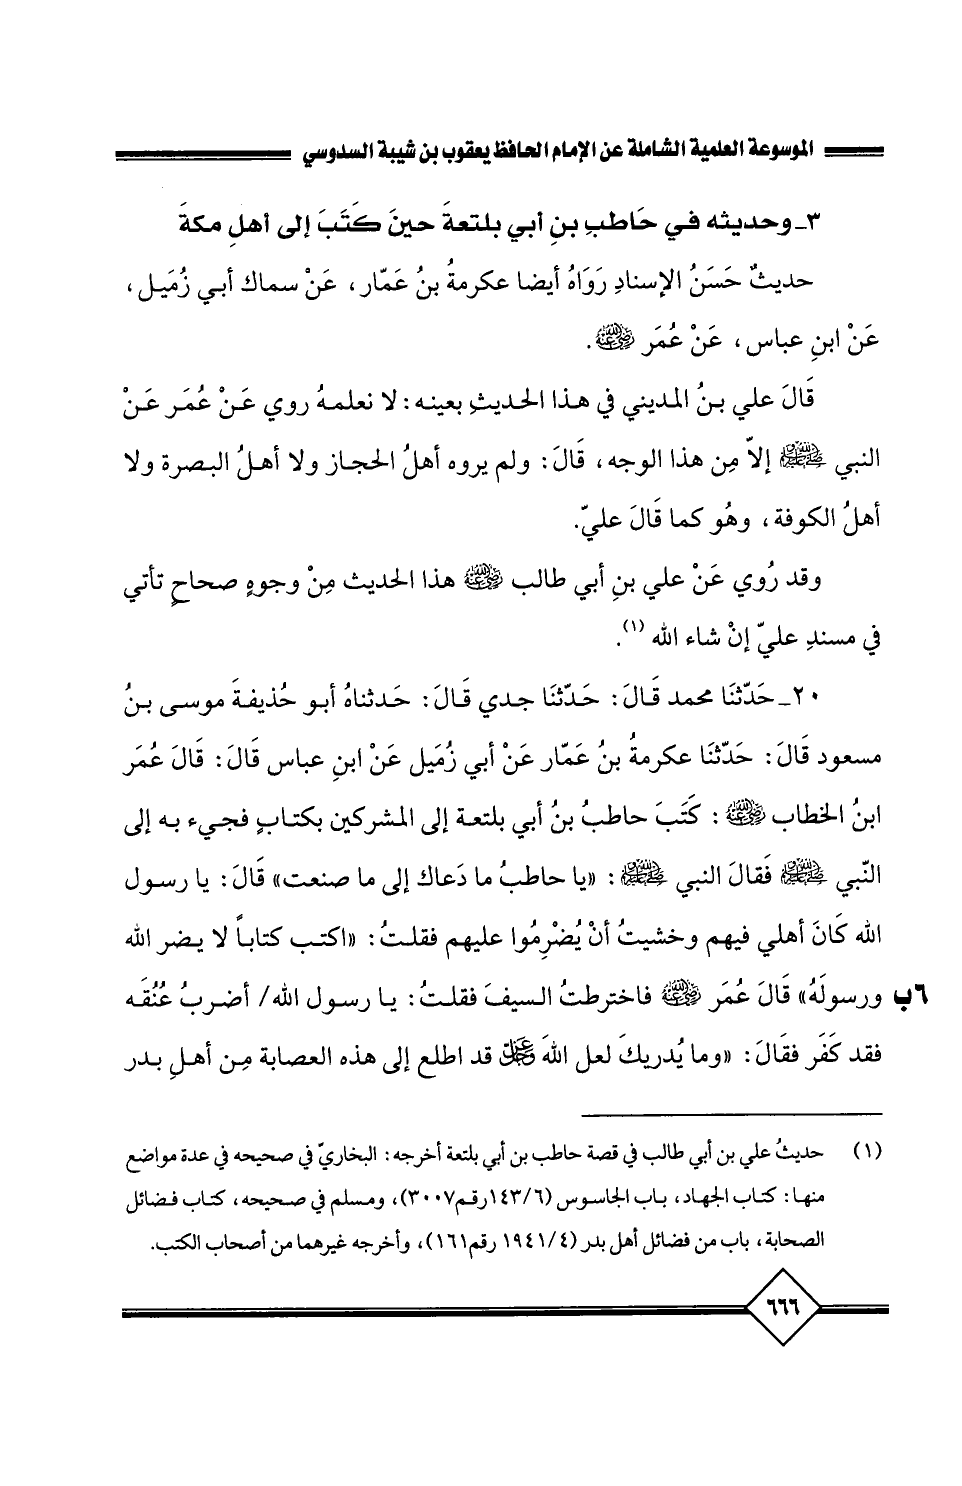 الموسوعة العلمية الشاملة عن الإمام الحافظ يعقوب بن شيبة السدوسي
٣ـ وحديثه في حَاطبِ بنِ أبي بلتعةَ حينَ كَتَبَ إلى أهلِ مكةَ
حديثٌ حَسَنُ الإسنادِ رَوَاهُ أيضا عكرمةُ بنُ عَمّار، عَنْ سماك أبي زُمَيل،
عَنْ ابنِ عباس، عَنْ عُمَر ﵁.
قَالَ علي بنُ المديني في هذا الحديثِ بعينه: لا نعلمهُ روي عَنْ عُمَر عَنْ
النبي ﷺ إلاّ مِن هذا الوجه، قَالَ: ولم يروه أهلُ الحجاز ولا أهلُ البصرة ولا
أهلُ الكوفة، وهُو كما قَالَ عليّ.
وقد رُوي عَنْ علي بنِ أبي طالب ﵁ هذا الحديث مِنْ وجوهٍ صحاحٍ تأتي
في مسندِ عليّ إنْ شاء الله (١).
٢٠ـ حَدّثنَا محمد قَالَ: حَدّثنَا جدي قَالَ: حَدثناهُ أبو حُذيفةَ موسى بنُ
مسعود قَالَ: حَدّثنَا عكرمةُ بنُ عَمّار عَنْ أبي زُمَيل عَنْ ابنِ عباس قَالَ: قَالَ عُمَر
ابنُ الخطاب ﵁ : كَتَبَ حاطبُ بنُ أبي بلتعة إلى المشركين بكتابٍ فجيء به إلى
النّبي ﷺ فَقالَ النبي ﷺ : «يا حاطبُ ما دَعاك إلى ما صنعت» قَالَ: يا رسول
الله كَانَ أهلي فيهم وخشيتُ أنْ يُصْرِمُوا عليهم فقلتُ: «اكتب كتاباً لا يضر الله
٦ب ورسولَهُ» قَالَ عُمَر ﵁ فاخترطتُ السيفَ فقلتُ: يا رسول الله/ أضربُ عُنُقَه
فقد كَفَر فقَالَ: «وما يُدريكَ لعل اللهَ ﷿ قد اطلع إلى هذه العصابة مِن أهلِ بدر
(١) حديثُ علي بن أبي طالب في قصة حاطب بن أبي بلتعة أخرجه: البخاريّ في صحيحه في عدة مواضع
منها: كتاب الجهاد، باب الجاسوس (١٤٣/٦ رقم٣٠٠٧)، ومسلم في صحيحه، كتاب فضائل
الصحابة، باب من فضائل أهل بدر (١٩٤١/٤ رقم١٦١)، وأخرجه غيرهما من أصحاب الكتب.
٦٦٦